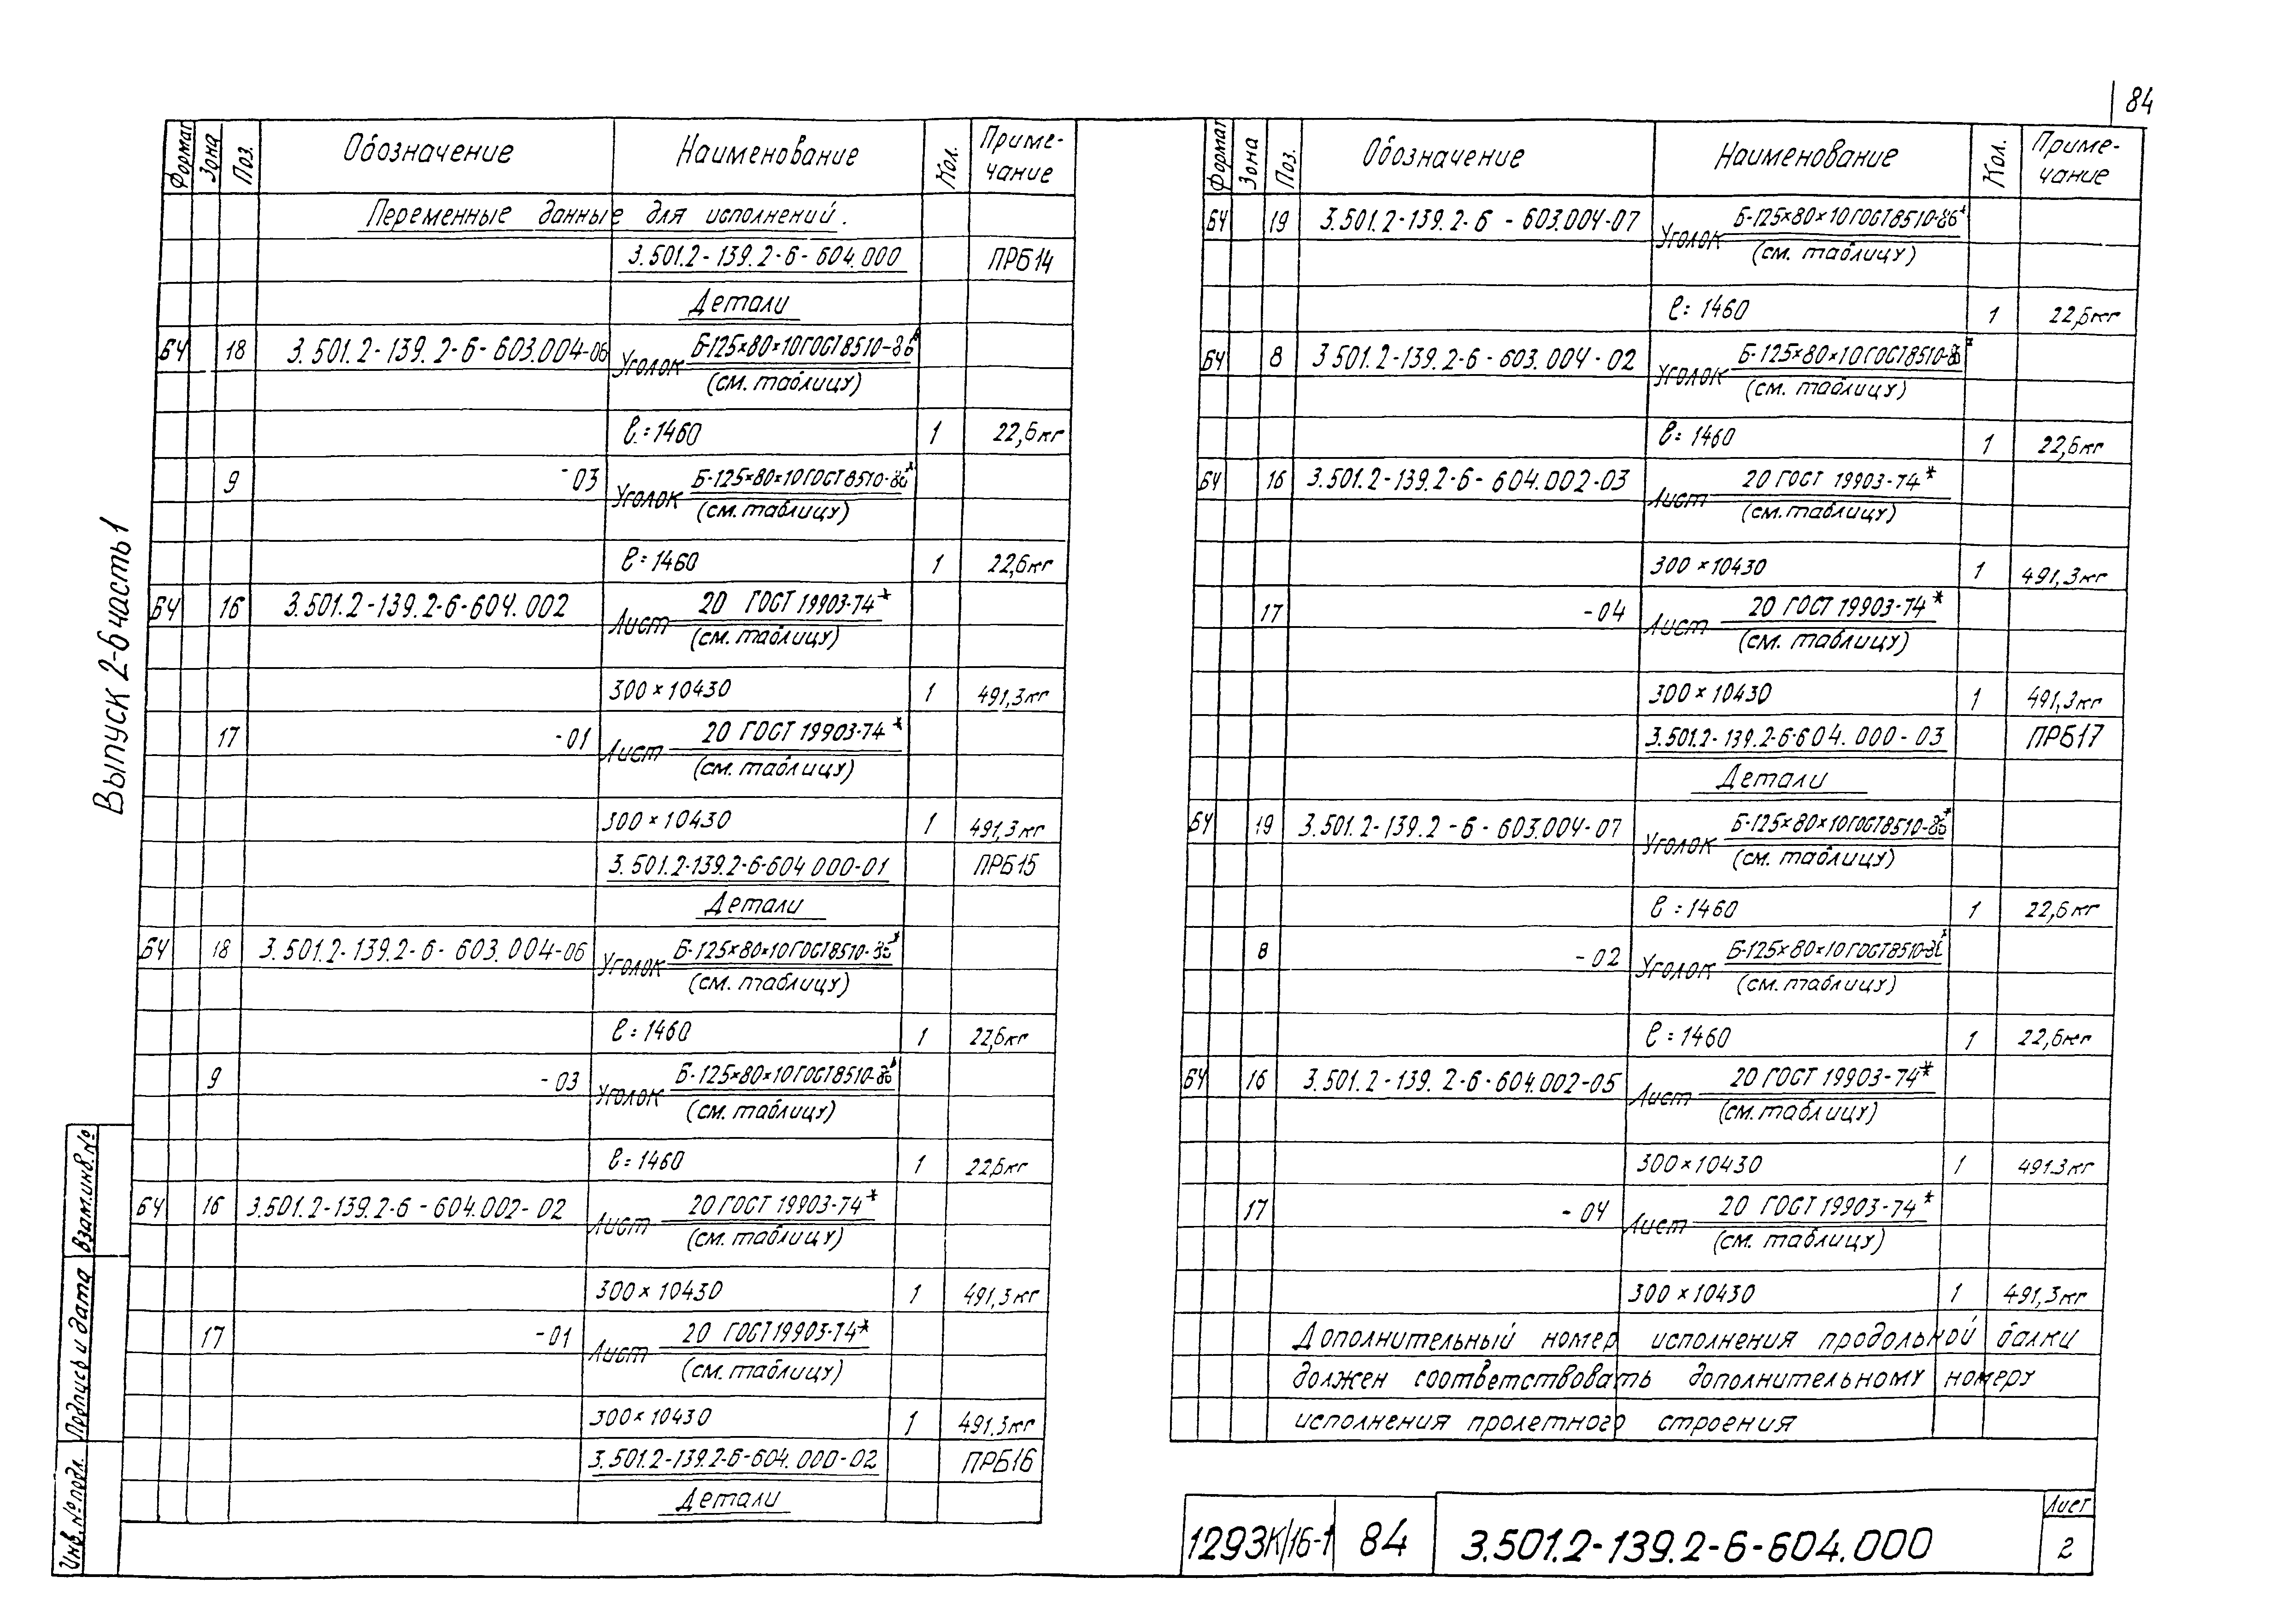 84
Выпуск 2-6 часть 1
Формат Зона Поз. Обозначение Наименование Кол. Приме-
чание
Переменные данные для исполнений.
3.501.2-139.2-6-604.000 ПРБ14
Детали
БЧ 18 3.501.2-139.2-6-603.004-06 Уголок Б-125×80×10 ГОСТ 8510-86*
(см. таблицу)
ℓ=1460 1 22,6кг
9 -03 Уголок Б-125×80×10 ГОСТ 8510-86*
(см. таблицу)
ℓ=1460 1 22,6кг
БЧ 16 3.501.2-139.2-6-604.002 Лист 20 ГОСТ 19903-74*
(см. таблицу)
300×10430 1 491,3кг
17 -01 Лист 20 ГОСТ 19903-74*
(см. таблицу)
300×10430 1 491,3кг
3.501.2-139.2-6-604 000-01 ПРБ15
Детали
БЧ 18 3.501.2-139.2-6-603.004-06 Уголок Б-125×80×10 ГОСТ 8510-86*
(см. таблицу)
ℓ=1460 1 22,6кг
9 -03 Уголок Б-125×80×10 ГОСТ 8510-86*
(см. таблицу)
ℓ=1460 1 22,6кг
БЧ 16 3.501.2-139.2-6-604.002-02 Лист 20 ГОСТ 19903-74*
(см. таблицу)
300×10430 1 491,3кг
17 -01 Лист 20 ГОСТ 19903-74*
(см. таблицу)
300×10430 1 491,3кг
3.501.2-139.2-6-604.000-02 ПРБ16
Детали
Формат Зона Поз. Обозначение Наименование Кол. Приме-
чание
БЧ 19 3.501.2-139.2-6-603.004-07 Уголок Б-125×80×10 ГОСТ 8510-86*
(см. таблицу)
ℓ=1460 1 22,6кг
БЧ 8 3.501.2-139.2-6-603.004-02 Уголок Б-125×80×10 ГОСТ 8510-86*
(см. таблицу)
ℓ=1460 1 22,6кг
БЧ 16 3.501.2-139.2-6-604.002-03 Лист 20 ГОСТ 19903-74*
(см. таблицу)
300×10430 1 491,3кг
17 -04 Лист 20 ГОСТ 19903-74*
(см. таблицу)
300×10430 1 491,3кг
3.501.2-139.2-6-604.000-03 ПРБ17
Детали
БЧ 19 3.501.2-139.2-6-603.004-07 Уголок Б-125×80×10 ГОСТ 8510-86*
(см. таблицу)
ℓ=1460 1 22,6кг
8 -02 Уголок Б-125×80×10 ГОСТ 8510-86*
(см. таблицу)
ℓ=1460 1 22,6кг
БЧ 16 3.501.2-139.2-6-604.002-05 Лист 20 ГОСТ 19903-74*
(см. таблицу)
300×10430 1 491.3кг
17 -04 Лист 20 ГОСТ 19903-74*
(см. таблицу)
300×10430 1 491,3кг
Дополнительный номер исполнения продольной балки
должен соответствовать дополнительному номеру
исполнения пролетного строения
Инв.№ подл. Подпись и дата Взам.инв.№
1293К/16-1 84 3.501.2-139.2-6-604.000 Лист
2